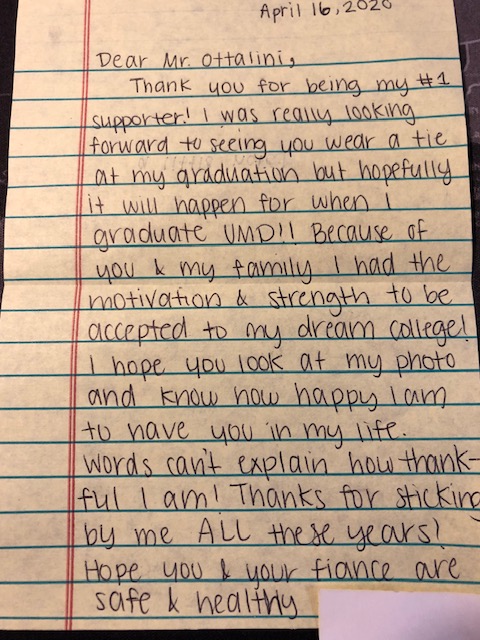 April 16, 2020
Dear Mr. Ottalini,
Thank you for being my #1
supporter! I was really looking
forward to seeing you wear a tie
at my graduation but hopefully
it will happen for when I
graduate UMD!! Because of
you & my family I had the
motivation & strength to be
accepted to my dream college!
I hope you look at my photo
and know how happy I am
to have you in my life.
Words can't explain how thank-
ful I am! Thanks for sticking
by me ALL these years!
Hope you & your fiance are
safe & healthy